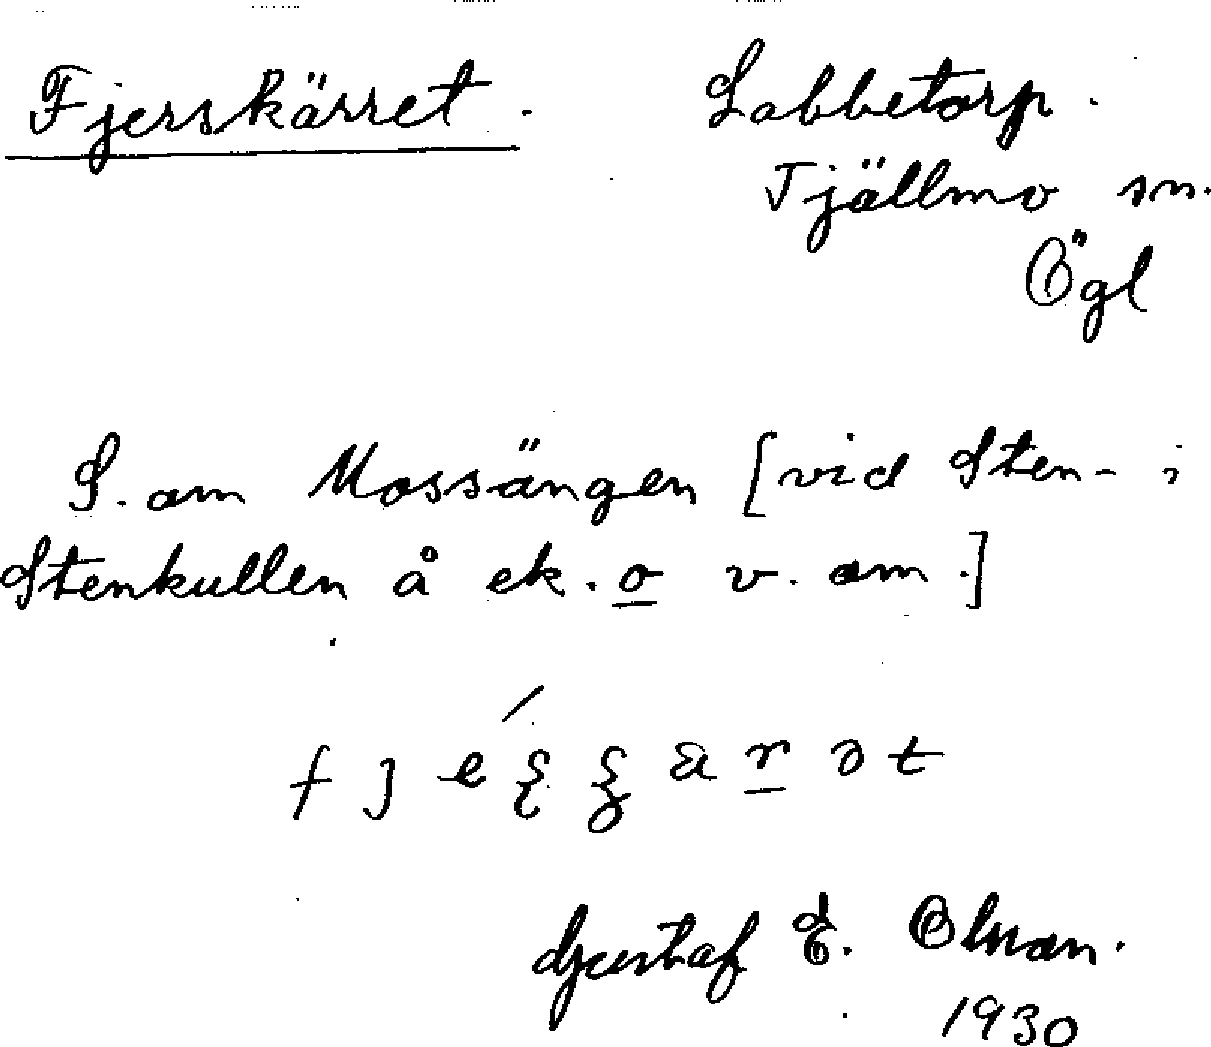 Fjerskärret. Labbetorp.
Tjällmo sn.
Ögl
S. om Mossängen [vid Sten- i
Stenkullen å ek. o v. om.]
Gustaf E. Olsson.
1930